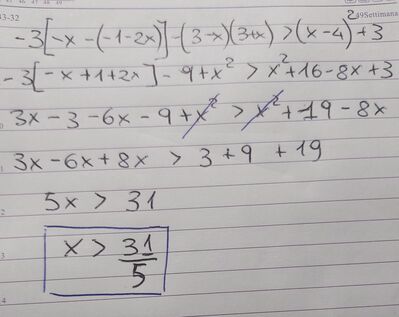 3-32 49Settimana
-3[-x-(-1-2x)]-(3-x)(3+x)>(x-4)²+3
-3[-x+1+2x]-9+x²>x²+16-8x+3
3x-3-6x-9+x²>x²+19-8x
3x-6x+8x>3+9+19
5x>31
x>31/5